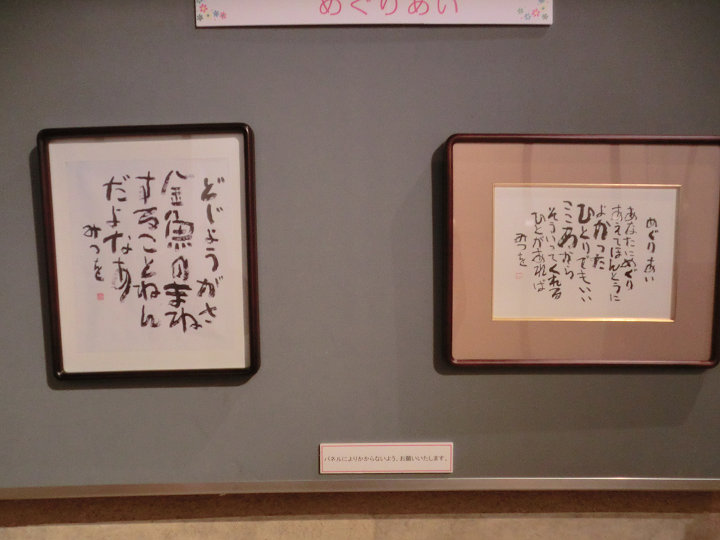 めぐりあい
どじょうがさ
金魚のまね
することねん
だよなあ
みつを
めぐりあい
あなたにめぐり
あえてほんとうに
よかった
ひとりでもいい
こころから
そういってくれる
ひとがあれば
みつを
パネルによりかからないよう、お願いいたします。